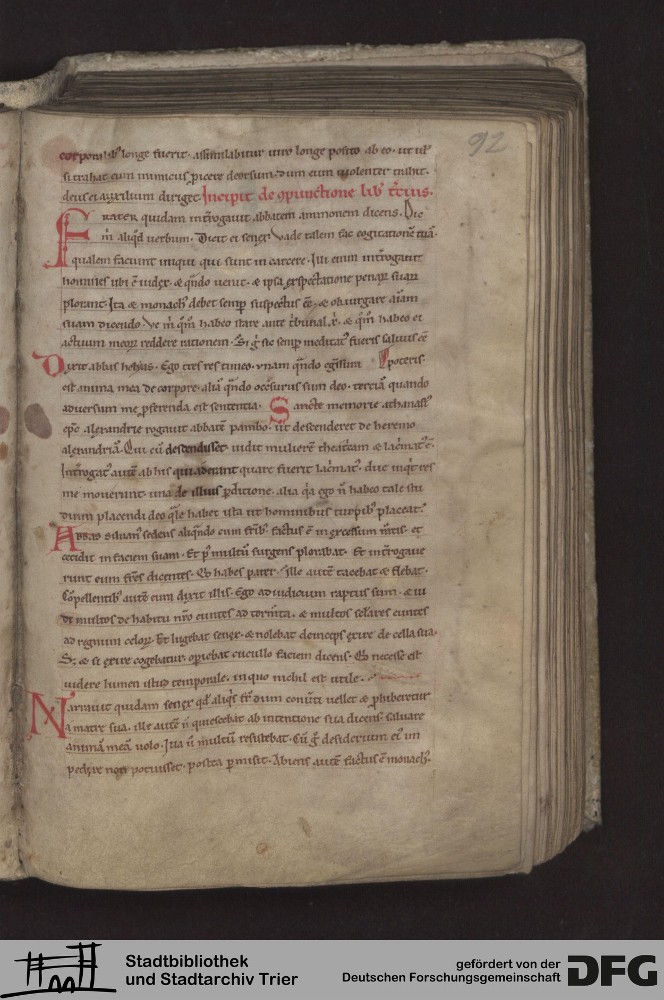 92
corporalib; longe fuerit. assimilabitur uiro longe posito ab eo. ut uł
si trahat eum inimicus ꝓicere deorsum. dum eum uiolenter trahit.
deus ei auxilium diriget. Incipit de ꝯpunctione lib̄ t̄cius.
FRATER quidam int̄rogauit abbatem ammonem dicens. Dic
m̄ aliqđ uerbum. Dixit ei senex. Vade talem fac cogitationē tuā.
qualem faciunt iniqui qui sunt in carcere. Illi enim int̄rogant
homines ubi ē iudex. & qn̄do uenit. & ipsa exspectatione penaꝝ suaꝝ
plorant. Ita & monach' debet semꝑ suspectus eē. & obiurgare aīam
suam dicendo. Ve m̄ qm̄ habeo stare ante t̄bunal x̄. & qm̄ habeo ei
actuum meoꝝ reddere rationem. Si ḡ sic semꝑ meditat' fueris saluus eē
Dixit abbas helyas. Ego tres res timeo. vnam quando egressura poteris.
est anima mea de corpore. aliā qn̄do occursurus sum deo. terciā quando
aduersum me ꝓferenda est sententia. Sancte memorie athanasi'
ep̄c alexandrie rogauit abbatē pambo. ut descenderet de heremo
alexandriā. Qui cū descendisset. uidit mulierē theatricam & lac̄mat' ē.
Int̄rogat' autē ab his qui aderant quare fuerit lac̄mat'. due inq̄t res
me mouerunt. una de illius ꝑditione. alia q̄a ego n̄ habeo tale stu
dium placendi deo q̄le habet ista ut hominibus turpib; placeat.
Abbas siluan' sedens aliqn̄do cum fr̄ib; factus ē in excessum m̄tis. et
cecidit in faciem suam. Et p' multū surgens plorabat. Et int̄rogaue
runt eum fr̄es dicentes. Qd habes pater. Ille autē tacebat & flebat.
Cōpellentib; autē eum dixit illis. Ego ad iudicium raptus sum. & ui
di multos de habitu nr̄o euntes ad torm̄ta. & multos sclares euntes
ad regnum celoꝝ. Et lugebat senex. & nolebat deinceps exire de cella sua.
S; & si exire cogebatur. oꝑiebat cucullo faciem dicens. Qd necesse est
uidere lumen istud temporale. in quo nichil est utile.
Narrauit quidam senex qđ aliq̄s fr̄ dum conūti uellet & ꝓhiberetur
a matre sua. ille autē n̄ quiescebat ab intentione sua dicens. saluare
animā meā uolo. Illa n̄ multū resistebat. Cū ḡ desiderium ei' im
pedire non potuisset. postea ꝑmisit. Abiens autē factus ē monach'.
Stadtbibliothek
und Stadtarchiv Trier
gefördert von der
Deutschen Forschungsgemeinschaft
DFG